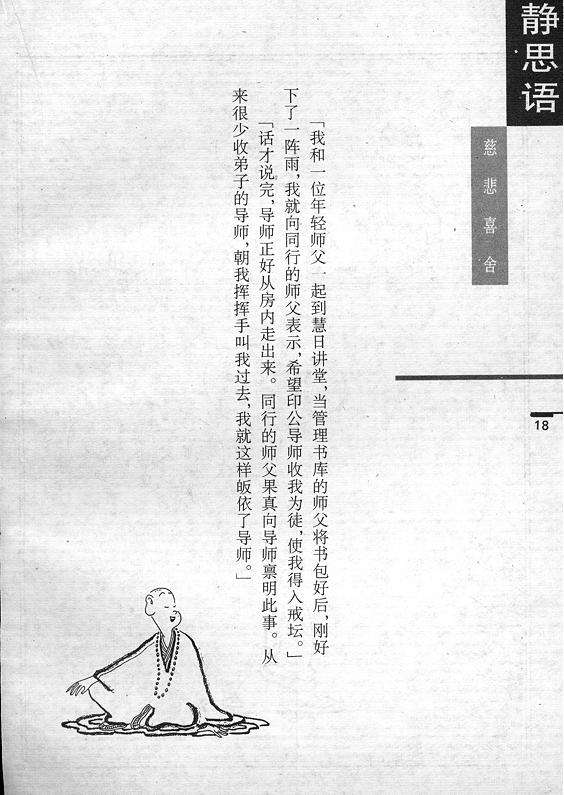 静思语
慈悲喜舍
18
「我和一位年轻师父一起到慧日讲堂，当管理书库的师父将书包好后，刚好
下了一阵雨，我就向同行的师父表示，希望印公导师收我为徒，使我得入戒坛。」
「话才说完，导师正好从房内走出来。同行的师父果真向导师禀明此事。从
来很少收弟子的导师，朝我挥挥手叫我过去，我就这样皈依了导师。」